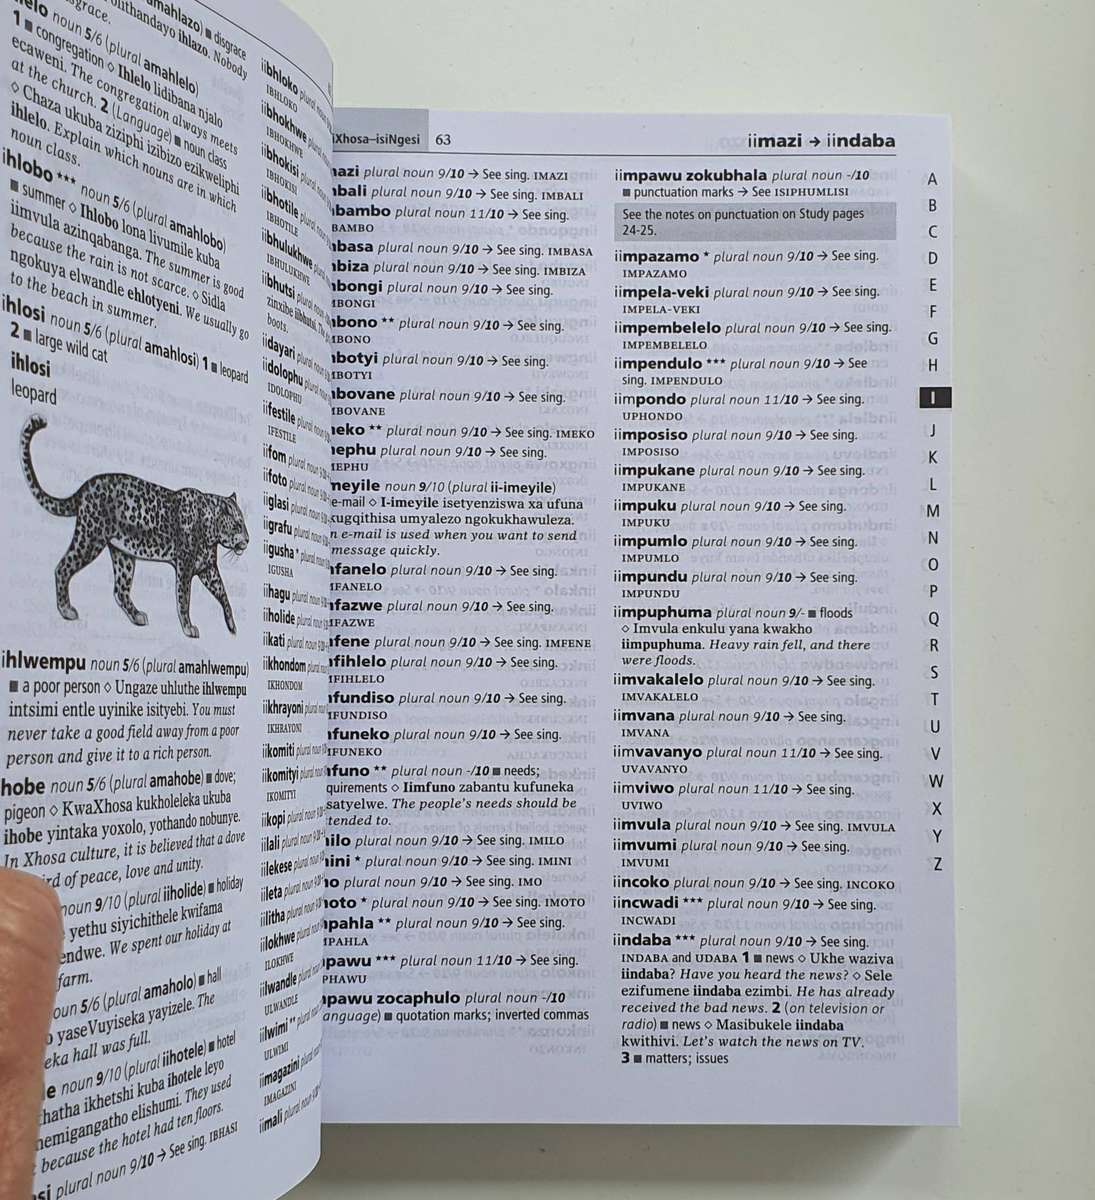 amahlazo) ■ disgrace
olithandayo ihlazo. Nobody
sgrace.
noun 5/6 (plural amahlelo)
1 ■ congregation ◇ Ihlelo lidibana njalo
ecaweni. The congregation always meets
at the church. 2 (Language) ■ noun class
◇ Chaza ukuba ziziphi izibizo ezikweliphi
ihlelo. Explain which nouns are in which
noun class.
ihlobo *** noun 5/6 (plural amahlobo)
■ summer ◇ Ihlobo lona livumile kuba
iimvula azinqabanga. The summer is good
because the rain is not scarce. ◇ Sidla
ngokuya elwandle ehlotyeni. We usually go
to the beach in summer.
ihlosi noun 5/6 (plural amahlosi) 1 ■ leopard
2 ■ large wild cat
ihlosi
leopard
ihlwempu noun 5/6 (plural amahlwempu)
■ a poor person ◇ Ungaze uhluthe ihlwempu
intsimi entle uyinike isityebi. You must
never take a good field away from a poor
person and give it to a rich person.
hobe noun 5/6 (plural amahobe) ■ dove;
pigeon ◇ KwaXhosa kukholeleka ukuba
ihobe yintaka yoxolo, yothando nobunye.
In Xhosa culture, it is believed that a dove
ird of peace, love and unity.
noun 9/10 (plural iiholide) ■ holiday
yethu siyichithele kwifama
endwe. We spent our holiday at
farm.
oun 5/6 (plural amaholo) ■ hall
yaseVuyiseka yayizele. The
eka hall was full.
le noun 9/10 (plural iihotele) ■ hotel
hatha ikhetshi kuba ihotele leyo
nemigangatho elishumi. They used
because the hotel had ten floors.
si plural noun 9/10 → See sing. IBHASI
iibhloko plural noun
IBHLOKO
iibhokhwe plural
IBHOKHWE
iibhokisi plural
IBHOKISI
iibhotile plural
IBHOTILE
iibhulukhwe
IBHULUKHWE
iibhutsi plural
zinxibe iibhutsi.
boots.
iidayari plural noun
iidolophu plural
IDOLOPHU
iifestile plural noun
IFESTILE
iifom plural noun
iifoto plural noun
iiglasi plural noun
iigrafu plural noun
iigusha * plural
IGUSHA
iihagu plural noun
iiholide plural noun
iikati plural noun
iikhondom plural
IKHONDOM
iikhrayoni plural
IKHRAYONI
iikomiti plural
iikomityi plural
IKOMITYI
iikopi plural noun
iilali plural noun
iilekese plural noun
iileta plural noun
iilitha plural noun
iilokhwe plural
ILOKHWE
iilwandle plural
ULWANDLE
iilwimi ** plural
ULWIMI
iimagazini plural
IMAGAZINI
iimali plural noun
Xhosa–isiNgesi 63 iimazi → iindaba
azi plural noun 9/10 → See sing. IMAZI
bali plural noun 9/10 → See sing. IMBALI
bambo plural noun 11/10 → See sing.
BAMBO
basa plural noun 9/10 → See sing. IMBASA
biza plural noun 9/10 → See sing. IMBIZA
bongi plural noun 9/10 → See sing.
MBONGI
bono ** plural noun 9/10 → See sing.
MBONO
botyi plural noun 9/10 → See sing.
MBOTYI
bovane plural noun 9/10 → See sing.
MBOVANE
meko ** plural noun 9/10 → See sing. IMEKO
ephu plural noun 9/10 → See sing.
MEPHU
meyile noun 9/10 (plural ii-imeyile)
e-mail ◇ I-imeyile isetyenziswa xa ufuna
kugqithisa umyalezo ngokukhawuleza.
n e-mail is used when you want to send
message quickly.
fanelo plural noun 9/10 → See sing.
MFANELO
fazwe plural noun 9/10 → See sing.
MFAZWE
fene plural noun 9/10 → See sing. IMFENE
fihlelo plural noun 9/10 → See sing.
MFIHLELO
fundiso plural noun 9/10 → See sing.
MFUNDISO
funeko plural noun 9/10 → See sing.
MFUNEKO
funo ** plural noun -/10 ■ needs;
quirements ◇ Iimfuno zabantu kufuneka
satyelwe. The people's needs should be
tended to.
milo plural noun 9/10 → See sing. IMILO
mini * plural noun 9/10 → See sing. IMINI
mo plural noun 9/10 → See sing. IMO
moto * plural noun 9/10 → See sing. IMOTO
pahla ** plural noun 9/10 → See sing.
MPAHLA
pawu *** plural noun 11/10 → See sing.
PHAWU
pawu zocaphulo plural noun -/10
anguage) ■ quotation marks; inverted commas
iimpawu zokubhala plural noun -/10
■ punctuation marks → See ISIPHUMLISI
See the notes on punctuation on Study pages
24-25.
iimpazamo * plural noun 9/10 → See sing.
IMPAZAMO
iimpela-veki plural noun 9/10 → See sing.
IMPELA-VEKI
iimpembelelo plural noun 9/10 → See sing.
IMPEMBELELO
iimpendulo *** plural noun 9/10 → See
sing. IMPENDULO
iimpondo plural noun 11/10 → See sing.
UPHONDO
iimposiso plural noun 9/10 → See sing.
IMPOSISO
iimpukane plural noun 9/10 → See sing.
IMPUKANE
iimpuku plural noun 9/10 → See sing.
IMPUKU
iimpumlo plural noun 9/10 → See sing.
IMPUMLO
iimpundu plural noun 9/10 → See sing.
IMPUNDU
iimpuphuma plural noun 9/- ■ floods
◇ Imvula enkulu yana kwakho
iimpuphuma. Heavy rain fell, and there
were floods.
iimvakalelo plural noun 9/10 → See sing.
IMVAKALELO
iimvana plural noun 9/10 → See sing.
IMVANA
iimvavanyo plural noun 11/10 → See sing.
UVAVANYO
iimviwo plural noun 11/10 → See sing.
UVIWO
iimvula plural noun 9/10 → See sing. IMVULA
iimvumi plural noun 9/10 → See sing.
IMVUMI
iincoko plural noun 9/10 → See sing. INCOKO
iincwadi *** plural noun 9/10 → See sing.
INCWADI
iindaba *** plural noun 9/10 → See sing.
INDABA and UDABA 1 ■ news ◇ Ukhe waziva
iindaba? Have you heard the news? ◇ Sele
ezifumene iindaba ezimbi. He has already
received the bad news. 2 (on television or
radio) ■ news ◇ Masibukele iindaba
kwithivi. Let's watch the news on TV.
3 ■ matters; issues
A
B
C
D
E
F
G
H
I
J
K
L
M
N
O
P
Q
R
S
T
U
V
W
X
Y
Z